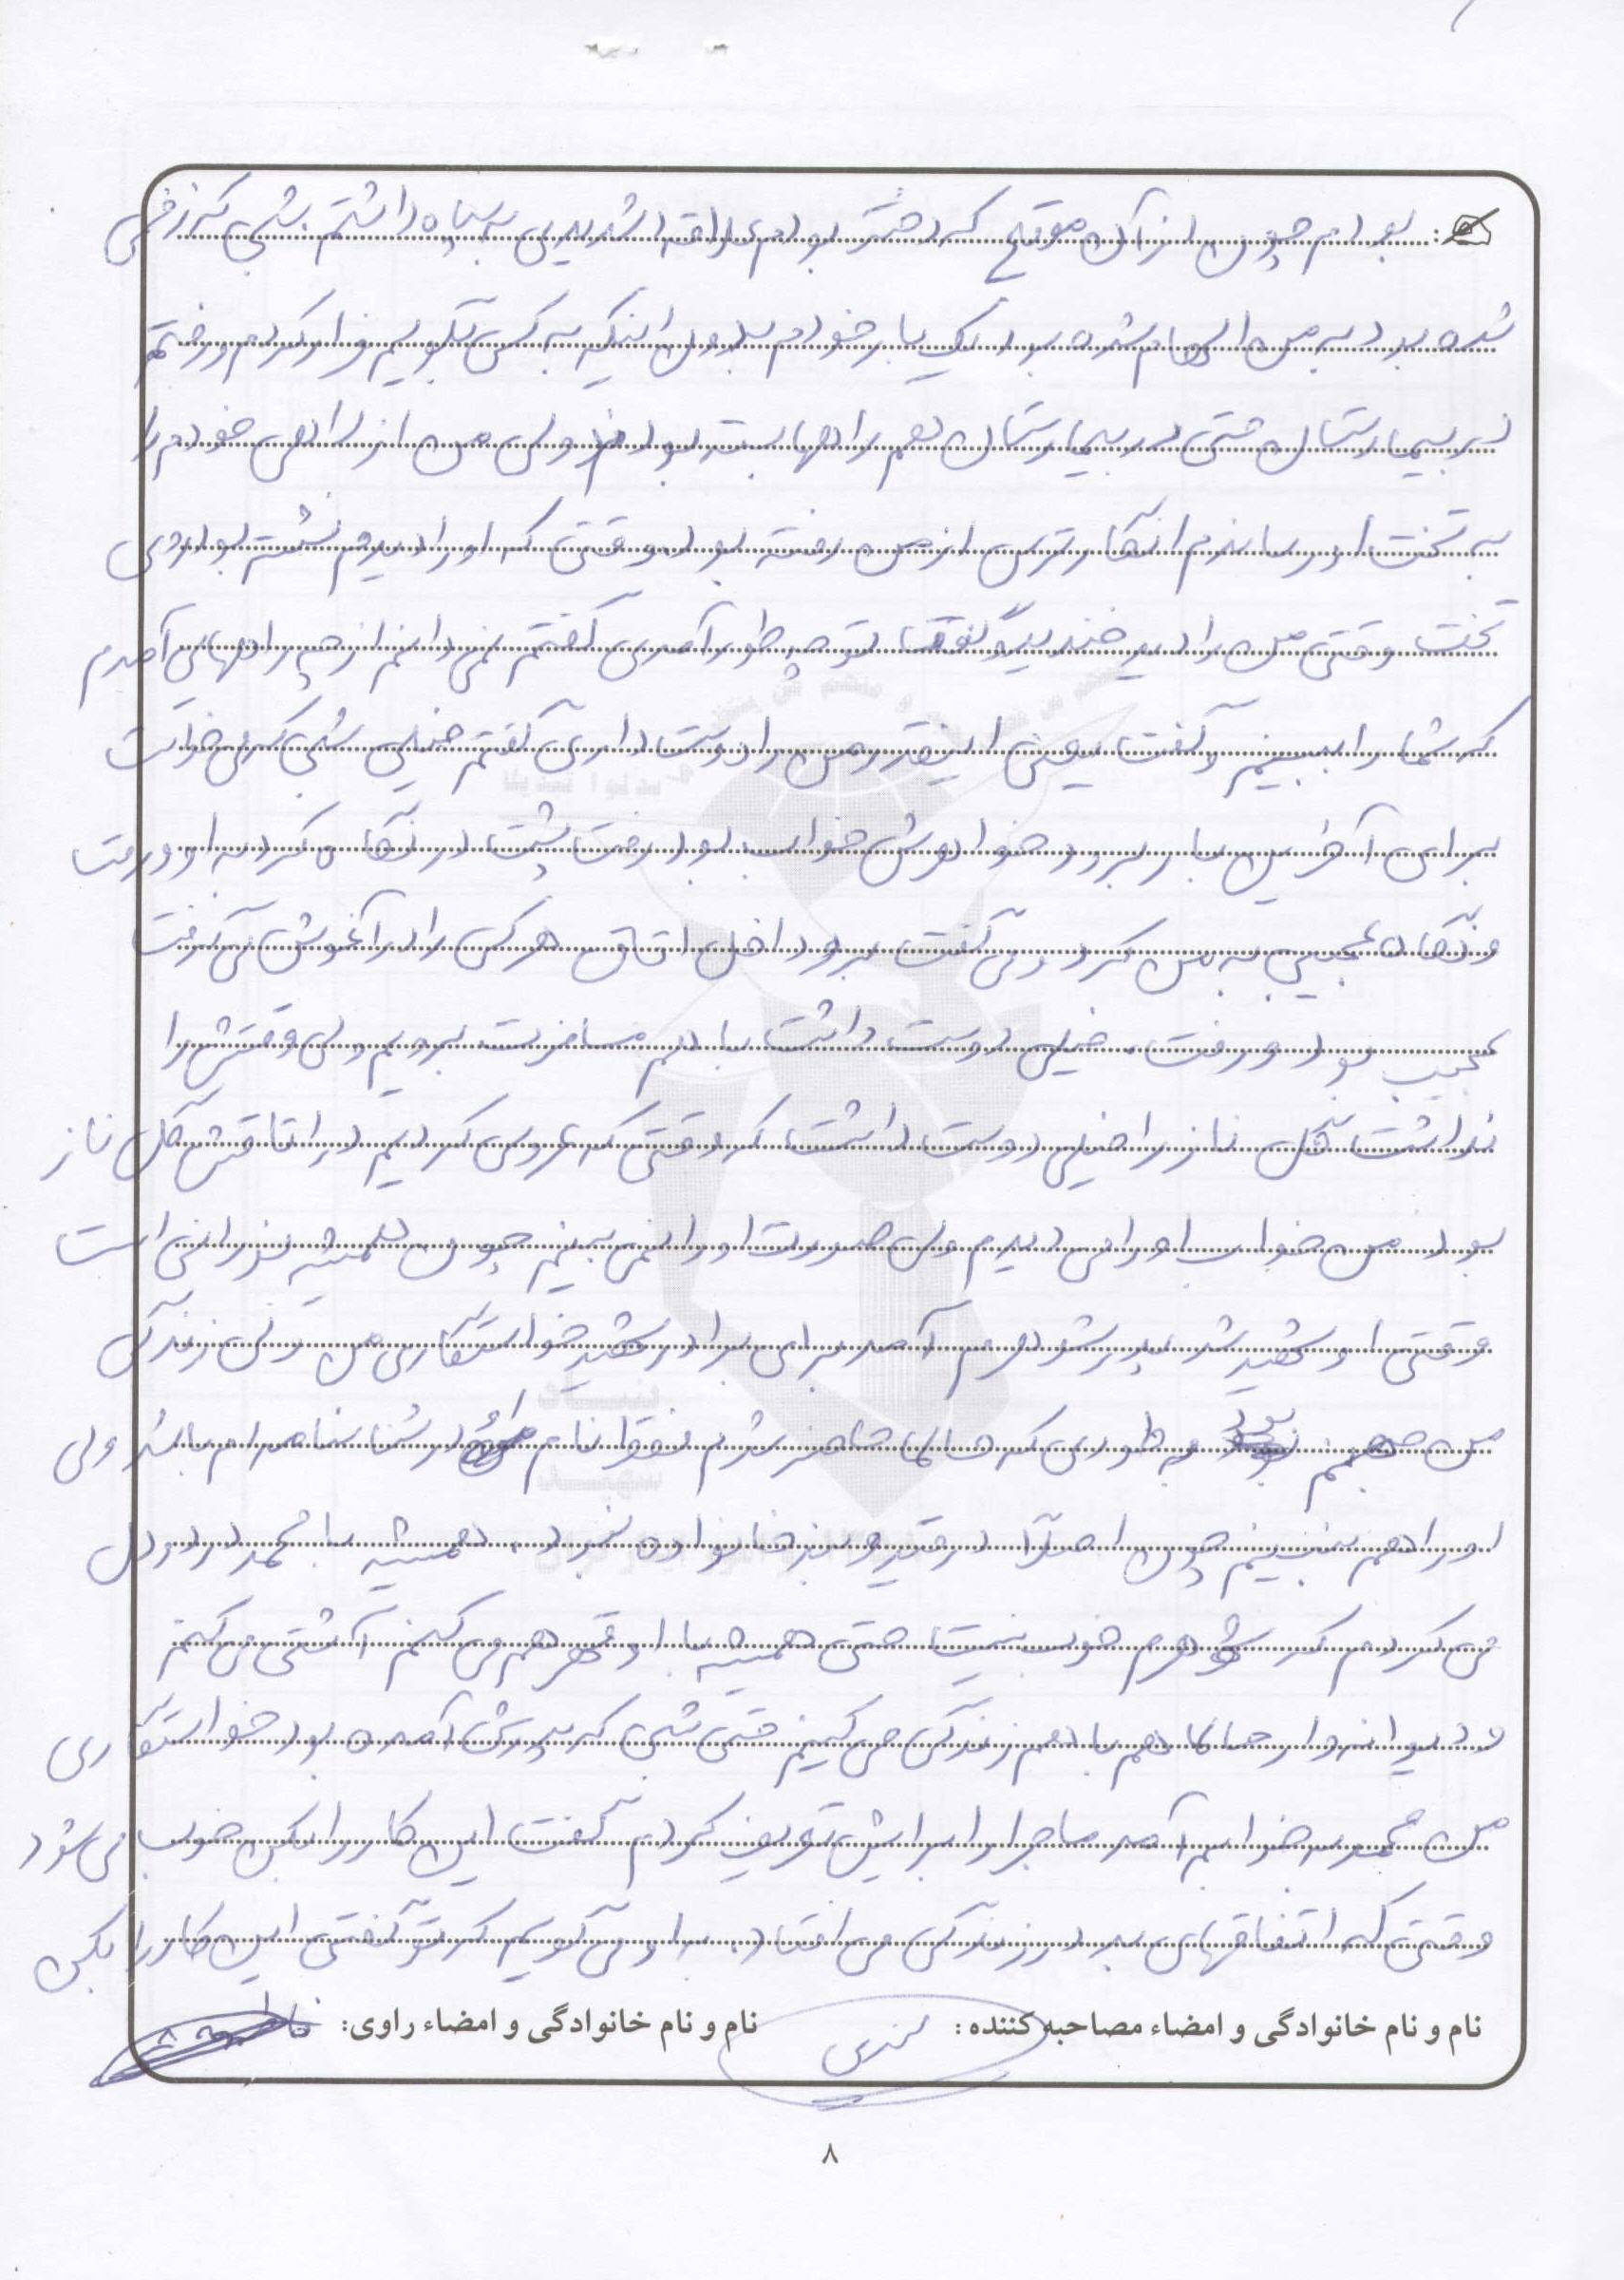 بودم چون از آن موقع که دختر بودم علاقه شدیدی به سپاه داشتم شبی که زخمی
شده بود به من الهام شده بود یک بار خودم بدون اینکه به کسی بگویم فرار کردم و رفتم
در بیمارستان حتی در بیمارستان هم راهها بسته بودند ولی من از راهی خودم را
به تخت او رساندم انگار ترس از من رفته بود وقتی که او را دیدم نشسته بود روی
تخت وقتی من را دید خندید و گفت تو چه طور آمدی گفتم نمی دانم از چه راههایی آمدم
که شما را ببینم گفت یعنی اینقدر من را دوست داری گفتم خیلی شبی که می خواست
برای آخرین بار برود خواهرش خواب بود رفت پشت در نگاه کرد به او و رفت
و نگاه عجیبی به من کرد و می گفت برو داخل اتاق هر کس را در آغوش می گرفت
عجیب بود و رفت. خیلی دوست داشت با هم مسافرت برویم ولی وقتش را
نداشت گل ناز را خیلی دوست داشت که وقتی که عروسی کردیم در اتاقش گل ناز
بود من خواب او را می دیدم ولی صورت او را نمی بینم چون همیشه نورانی است
وقتی او شهید شد پدر شوهرم آمد برای برادر شهید خواستگاری من ولی زندگی
من جهنم بود به طوری که حالا حاضر شدم فقط نام او در شناسنامه ام باشد ولی
او را هم نبینم چون اصلاً در قید و بند خانواده نبود. همیشه با محمد درد و دل
می کردم که شوهرم خوب نیست حتی همیشه با او قهر هم می کنم آشتی می کنم
و دیوانه وار حالا هم با هم زندگی می کنیم حتی شبی که پدرش آمده بود خواستگاری
من محمد به خوابم آمد ماجرا را برایش تعریف کردم گفت این کار را بکن خوب می شود
وقتی که اتفاقهای بد در زندگی می افتاد. به او می گویم که تو گفتی این کار را بکن
نام و نام خانوادگی و امضاء مصاحبه کننده: نام و نام خانوادگی و امضاء راوی:
۸